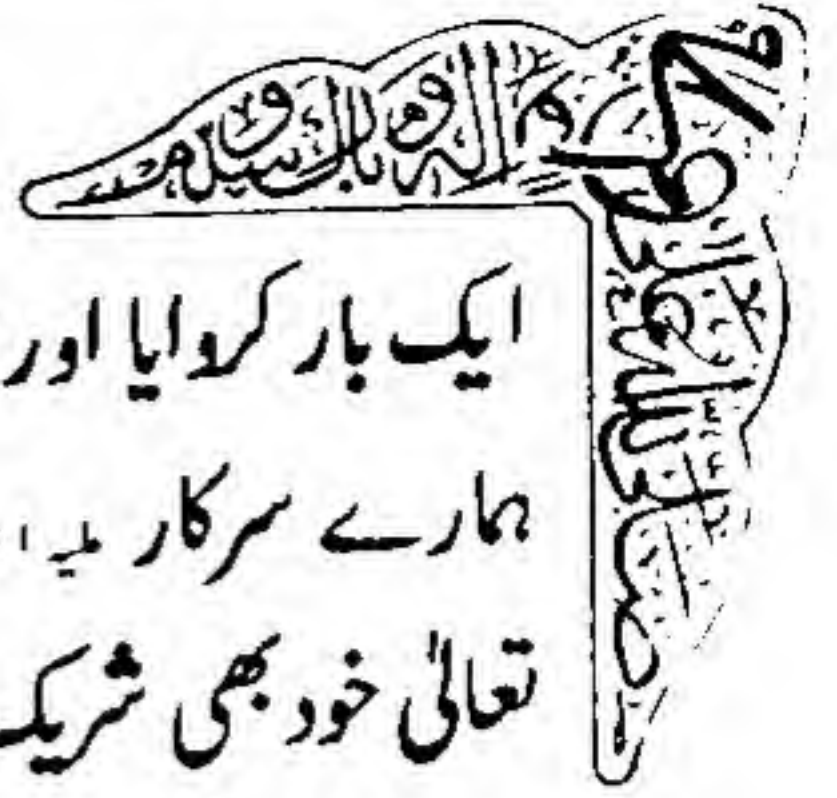 صلی اللہ علیہ وآلہ وبارک وسلم
ایک بار کروایا اور
ہمارے سرکار علیہ ا
تعالیٰ خود بھی شریک